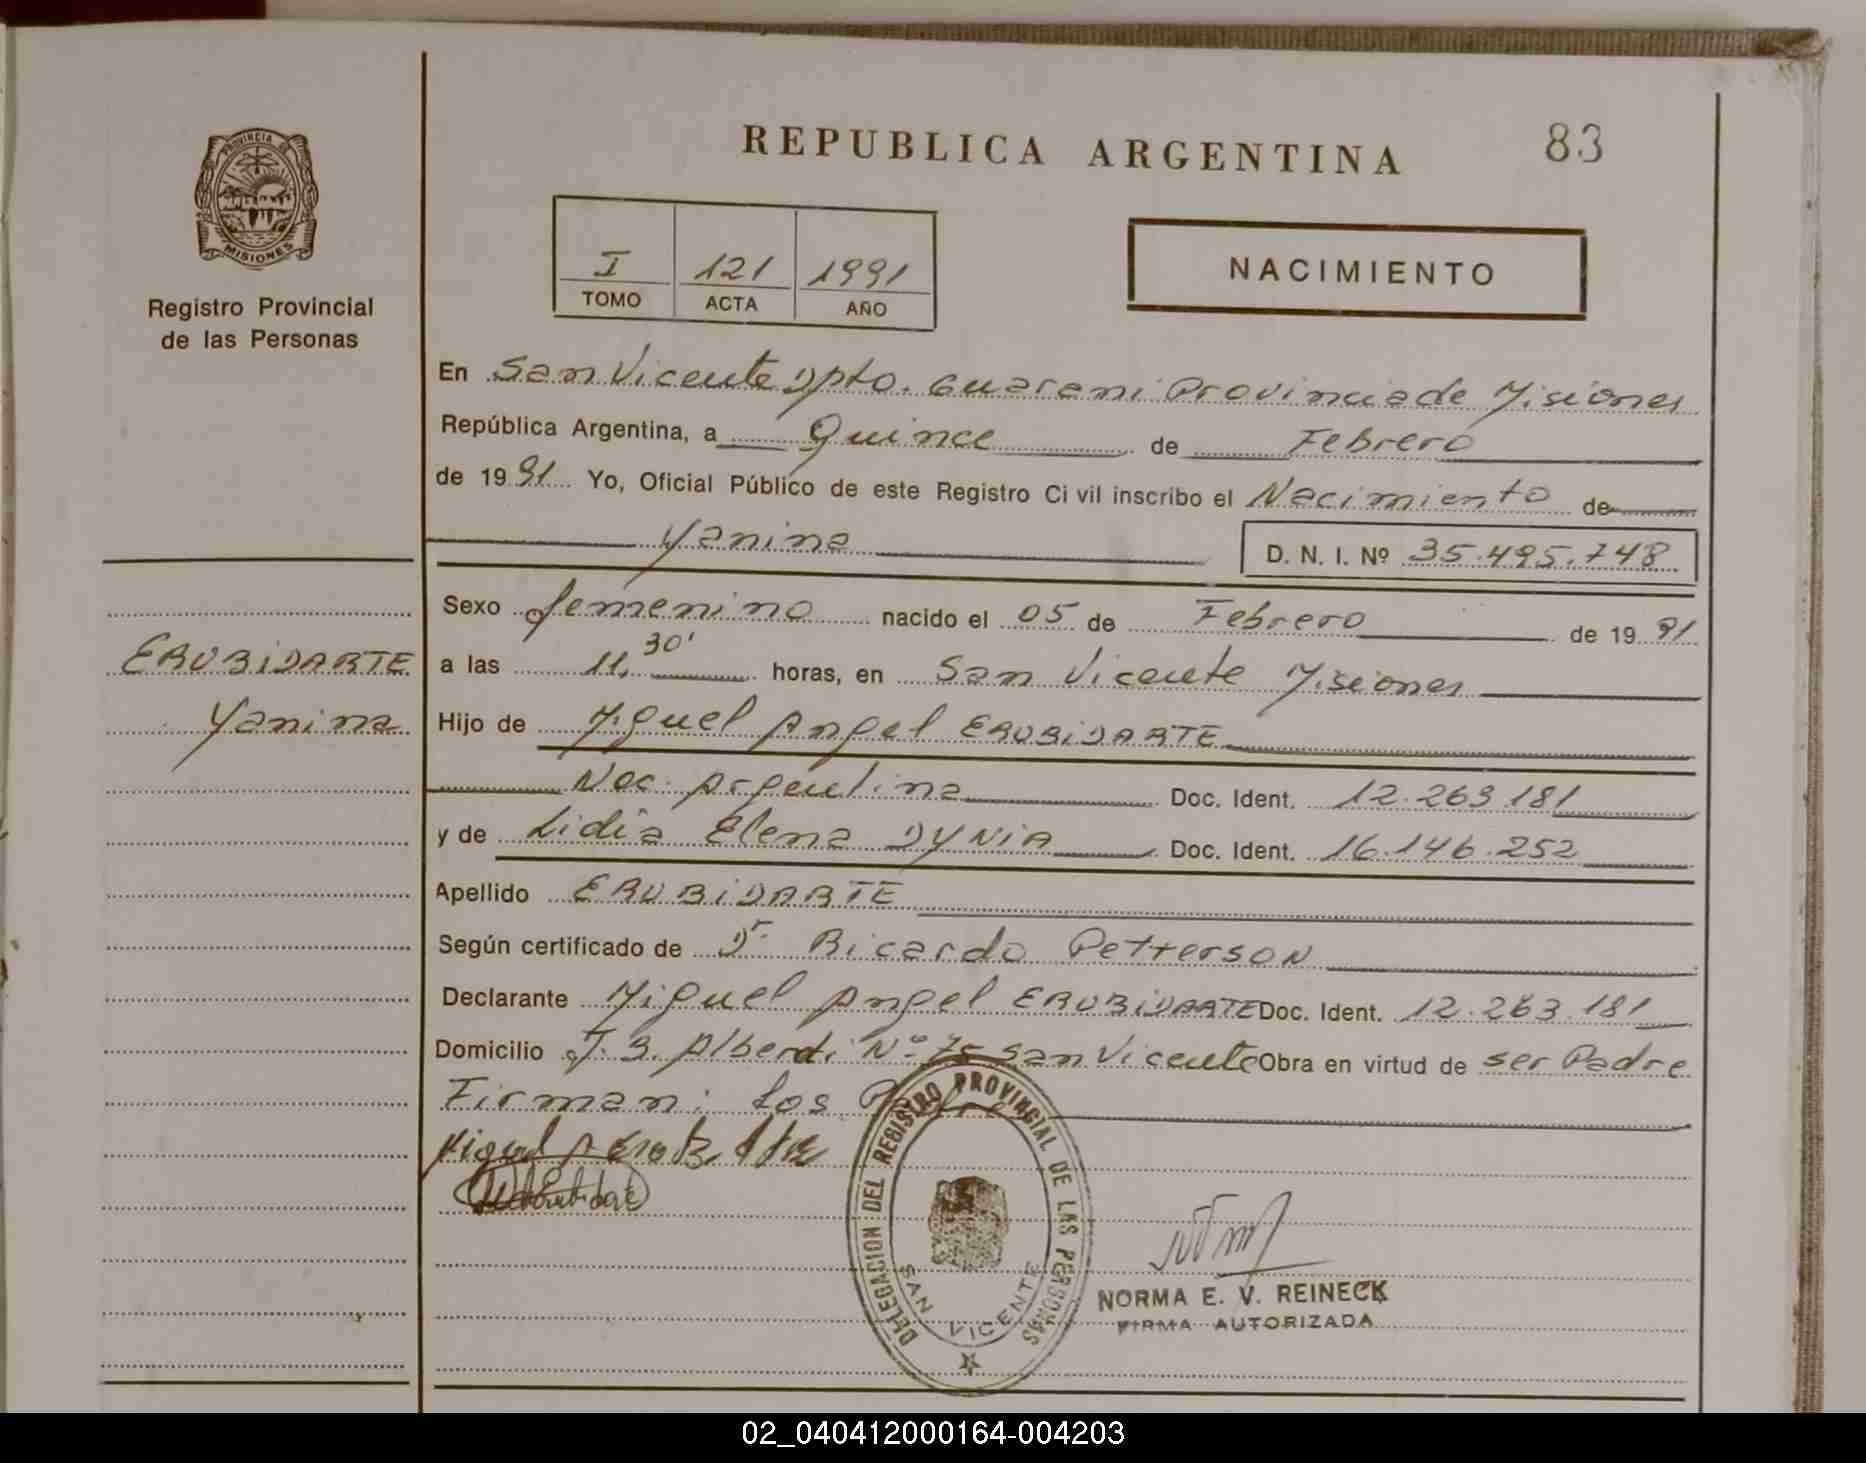 REPUBLICA ARGENTINA
83
PROVINCIA DE
MISIONES
Registro Provincial
de las Personas
I 121 1991
TOMO ACTA AÑO
NACIMIENTO
En San Vicente Dpto. Guarani Provincia de Misiones
República Argentina, a Quince de Febrero
de 1991 Yo, Oficial Público de este Registro Civil inscribo el Nacimiento de
Yanina D. N. I. Nº 35.495.748
Sexo femenino nacido el 05 de Febrero de 1991
ERUBIDARTE
Yanina
a las 11,30' horas, en San Vicente Misiones
Hijo de Miguel Angel ERUBIDARTE
Nac. Argentina Doc. Ident. 12.263.181
y de Lidia Elena DYNIA Doc. Ident. 16.146.252
Apellido ERUBIDARTE
Según certificado de Dr. Ricardo Petterson
Declarante Miguel Angel ERUBIDARTE Doc. Ident. 12.263.181
Domicilio J. B. Alberdi Nº 75 San Vicente Obra en virtud de ser Padre
Firman: Los
DELEGACION DEL REGISTRO PROVINCIAL DE LAS PERSONAS
SAN VICENTE
NORMA E. V. REINECK
FIRMA AUTORIZADA
02_040412000164-004203